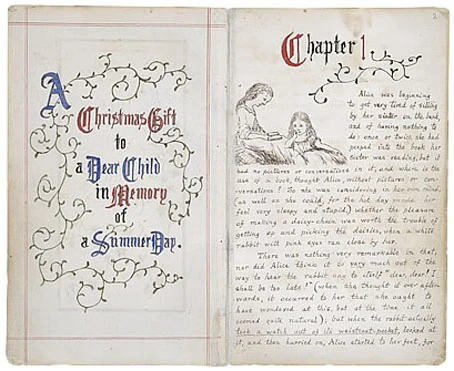 A
Christmas Gift
to
a Dear Child
in Memory
of
a Summer Day.
2
Chapter 1
Alice was beginning
to get very tired of sitting
by her sister on the bank,
and of having nothing to
do: once or twice she had
peeped into the book her
sister was reading, but it
had no pictures or conversations in it, and where is the
use of a book, thought Alice, without pictures or con-
versations? So she was considering in her own mind,
(as well as she could, for the hot day made her
feel very sleepy and stupid,) whether the pleasure
of making a daisy-chain was worth the trouble of
getting up and picking the daisies, when a white
rabbit with pink eyes ran close by her.
There was nothing very remarkable in that,
nor did Alice think it so very much out of the
way to hear the rabbit say to itself "dear, dear! I
shall be too late!" (when she thought it over after-
wards, it occurred to her that she ought to
have wondered at this, but at the time it all
seemed quite natural); but when the rabbit actually
took a watch out of its waistcoat-pocket, looked at
it, and then hurried on, Alice started to her feet, for